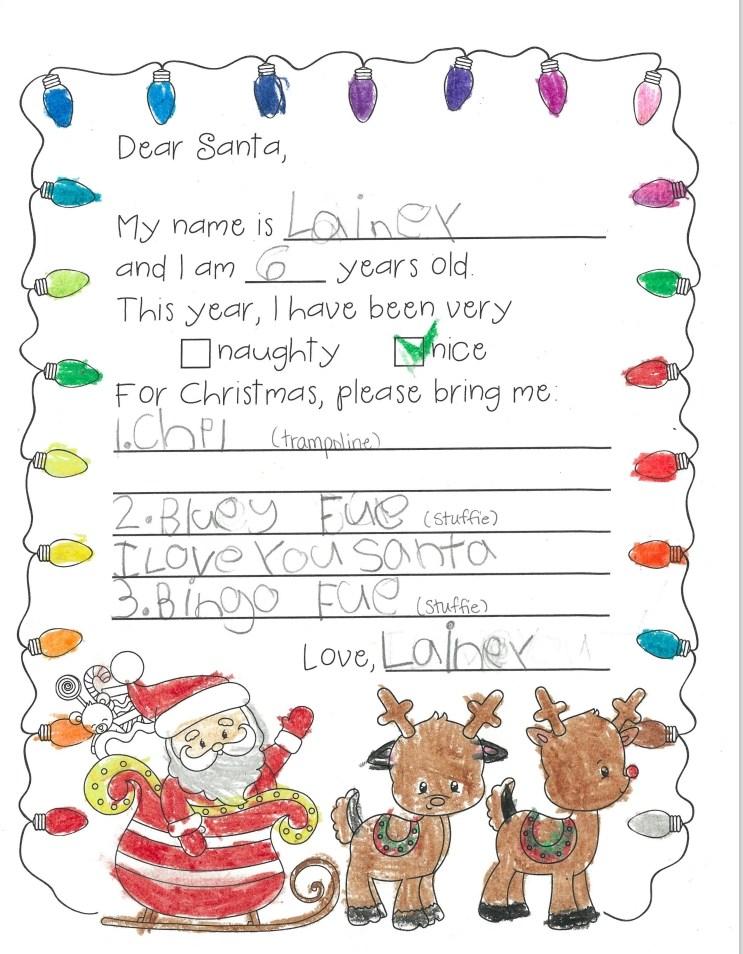 Dear Santa,
My name is Lainey
and I am 6 years old.
This year, I have been very
naughty nice
For Christmas, please bring me:
1. Chpl (trampoline)
2. Bluey Fue (stuffie)
I Love You Santa
3. Bingo Fue (stuffie)
Love, Lainey